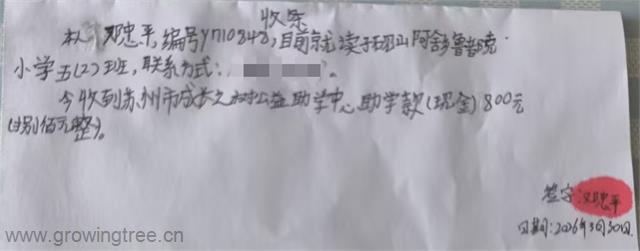 收条
本人邓忠平,编号yn10848,目前就读于砚山阿舍鲁都克
小学五(2)班,联系方式: 。
今收到苏州市成长之树公益助学中心助学款(现金)800元
(捌佰元整)。
签字:邓忠平
日期:2026年3月30日
www.growingtree.cn